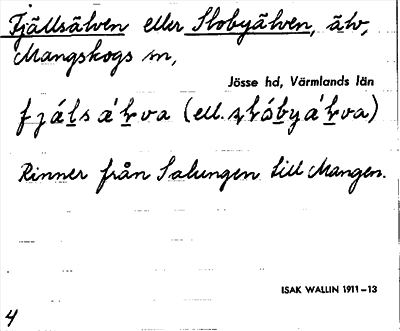 Fjällsälven eller Slobyälven, älv,
Mangskogs sn,
Jösse hd, Värmlands län
fjáḷsáḷva (ell.
Rinner från Salungen till Mangen.
ISAK WALLIN 1911–13
4